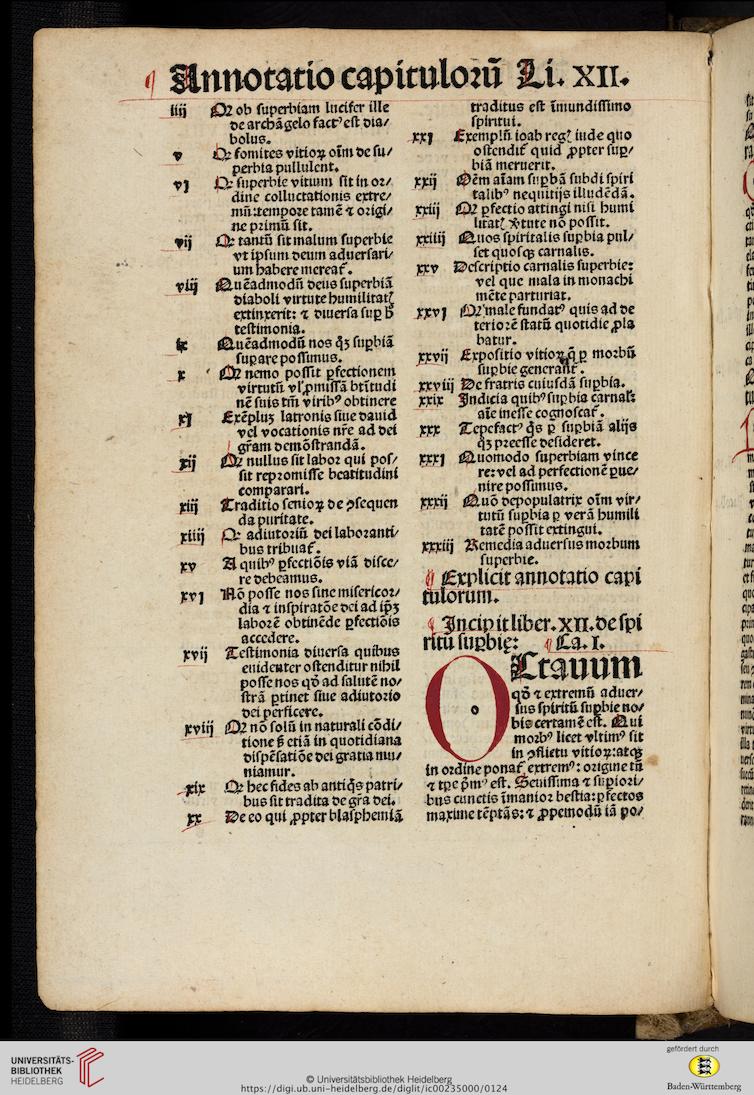 ¶ Annotatio capitulorū Li. XII.
iiij Qꝛ ob superbiam lucifer ille
de archāgelo factꝰ est dia⸗
bolus.
v Qꝛ fomites vitioꝝ oīm de su⸗
perbia pullulent.
vj Qꝛ superbie vitium sit in or⸗
dine colluctationis extre⸗
mū: tempore tamē ⁊ origi⸗
ne primū sit.
vij Qꝛ tantū sit malum superbie
vt ipsum deum aduersari⸗
um habere mereat̄.
viij Quēadmodū deus superbiā
diaboli virtute humilitatꝭ
extinxerit: ⁊ diuersa suꝑ b̄
testimonia.
ix Quēadmodū nos qꝫ suꝑbiā
suꝑare possimus.
x Qꝛ nemo possit ꝑfectionem
virtutū vꝉ ꝓmissā btītudi
nē suis tm̄ viribꝰ obtinere
xj Exēpluꝫ latronis siue dauid
vel vocationis nr̄e ad dei
gr̄am demōstrandā.
xij Qꝛ nullus sit labor qui pos⸗
sit repromisse beatitudini
comparari.
xiij Traditio senioꝝ de ꝯsequen
da puritate.
xiiij Qꝛ adiutoriū dei laboranti⸗
bus tribuat̄.
xv A quibꝰ ꝑfectiōis viā disce⸗
re debeamus.
xvj Nō posse nos sine misericor⸗
dia ⁊ inspiratōe dei ad ip̄ꝫ
laborē obtinēde ꝑfectiōis
accedere.
xvij Testimonia diuersa quibus
euidenter ostenditur nihil
posse nos qō ad salutē no⸗
strā ꝑtinet siue adiutorio
dei perficere.
xviij Qꝛ nō solū in naturali cōdi⸗
tione ꝫ etiā in quotidiana
dispēsatiōe dei gratia mu⸗
niamur.
xix Qꝛ hec fides ab antiqꝭ patri⸗
bus sit tradita de gr̄a dei.
xx De eo qui ꝓpter blasphemiā
traditus est īmundissimo
spiritui.
xxj Exemplū ioab regꝭ iude quo
ostendit̄ quid ꝓpter suꝑ⸗
biā meruerit.
xxij Oēm aīam suꝑbā subdi spiri
talibꝰ nequitijs illudēdā.
xxiij Qꝛ ꝑfectio attingi nisi humi
litatꝭ x̄tute nō possit.
xxiiij Quos spiritalis suꝑbia pul⸗
set quosqꝫ carnalis.
xxv Descriptio carnalis superbie:
vel que mala in monachi
mēte parturiat.
xxvj Qꝛ male fundatꝰ quis ad de
teriorē statū quotidie ꝓla
batur.
xxvij Expositio vitioꝝ q̄ ꝑ morbū
suꝑbie generant̄.
xxviij De fratris cuiusdā suꝑbia.
xxix Indicia quibꝰ suꝑbia carnalꝭ
aīe inesse cognoscat̄.
xxx Tepefactꝰ qꝭ ꝑ suꝑbiā alijs
qꝫ preesse desideret.
xxxj Quomodo superbiam vince
re: vel ad perfectionē ꝑue⸗
nire possimus.
xxxij Quō depopulatrix oīm vir⸗
tutū suꝑbia ꝑ verā humili
tatē possit extingui.
xxxiij Remedia aduersus morbum
superbie.
¶ Explicit annotatio capi
tulorum.
¶ Incipit liber .XII. de spi
ritū suꝑbię: ¶ Ca. I.
OCtauum
qō ⁊ extremū aduer⸗
sus spiritū suꝑbie no⸗
bis certamē est. Qui
morbꝰ licet vltimꝰ sit
in ꝯflictu vitioꝝ: atqꝫ
in ordine ponat̄ extremꝰ: origine tn̄
⁊ tꝑe p̄mꝰ est. Seuissima ⁊ suꝑiori⸗
bus cunctis īmanior bestia: ꝑfectos
maxime tēptās: ⁊ ꝓpemodū iā po⸗
UNIVERSITÄTS-
BIBLIOTHEK
HEIDELBERG
© Universitätsbibliothek Heidelberg
https://digi.ub.uni-heidelberg.de/diglit/ic00235000/0124
gefördert durch
Baden-Württemberg